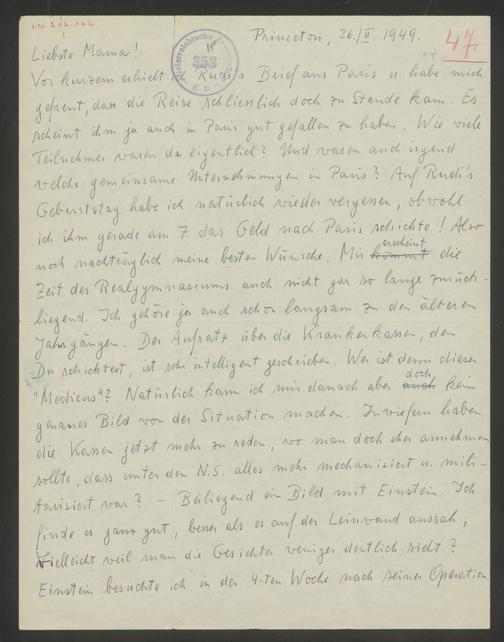 I.N. 213.162
Princeton, 26./II. 1949.
47.
Österreichische
353
Z.P.
Liebste Mama!
Vor kurzem erhielt ich Rudi's Brief aus Paris u. habe mich
gefreut, dass die Reise schliesslich doch zu Stande kam. Es
scheint ihm ja auch in Paris gut gefallen zu haben. Wie viele
Teilnehmer waren da eigentlich? Und waren auch irgend
welche gemeinsame Unternehmungen in Paris? Auf Rudi's
Geburtstag habe ich natürlich wieder vergessen, obwohl
ich ihm gerade am 7 das Geld nach Paris schickte! Also
noch nachträglich meine besten Wünsche. Mir kommt erscheint die
Zeit des Realgymnasiums auch nicht gar so lange zurück-
liegend. Ich gehöre ja auch schon langsam zu den älteren
Jahrgängen. Der Aufsatz über die Krankenkassen, den
Du schicktest, ist sehr intelligent geschrieben. Wer ist denn dieser
"Medicus"? Natürlich kann ich mir danach aber auch doch kein
genaues Bild von der Situation machen. Inwiefern haben
die Kassen jetzt mehr zu reden, wo man doch eher annehmen
sollte, dass unter den N.S. alles mehr mechanisiert u. mili-
tarisiert war? – Beiliegend ein Bild mit Einstein. Ich
finde es ganz gut, besser als es auf der Leinwand aussah;
Vielleicht weil man die Gesichter weniger deutlich sieht?
Einstein besuchte ich in der 4-ten Woche nach seiner Operation